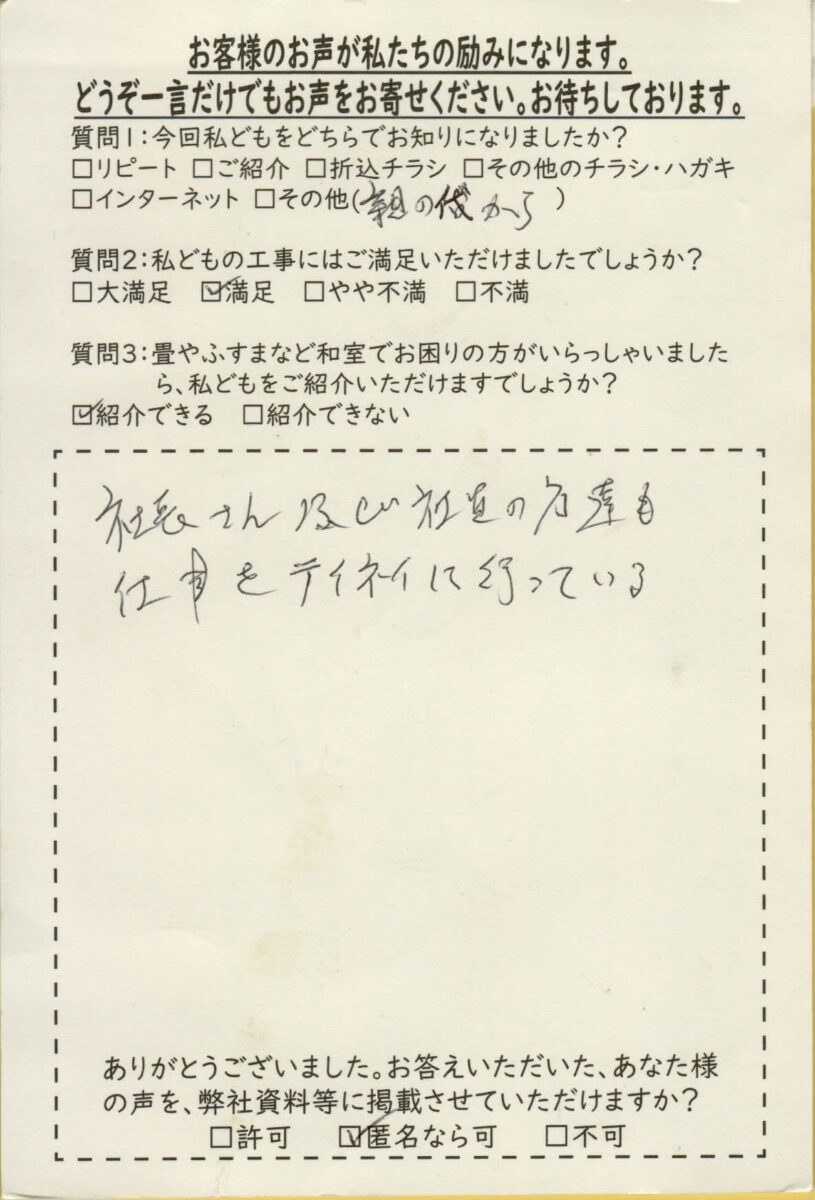 お客様のお声が私たちの励みになります。
どうぞ一言だけでもお声をお寄せください。お待ちしております。
質問1:今回私どもをどちらでお知りになりましたか?
□リピート □ご紹介 □折込チラシ □その他のチラシ・ハガキ
□インターネット □その他(親の代から)
質問2:私どもの工事にはご満足いただけましたでしょうか?
□大満足 ☑満足 □やや不満 □不満
質問3:畳やふすまなど和室でお困りの方がいらっしゃいました
ら、私どもをご紹介いただけますでしょうか?
☑紹介できる □紹介できない
社長さん及び社員の方達も
仕事をテイネイに行っている
ありがとうございました。お答えいただいた、あなた様
の声を、弊社資料等に掲載させていただけますか?
□許可 ☑匿名なら可 □不可